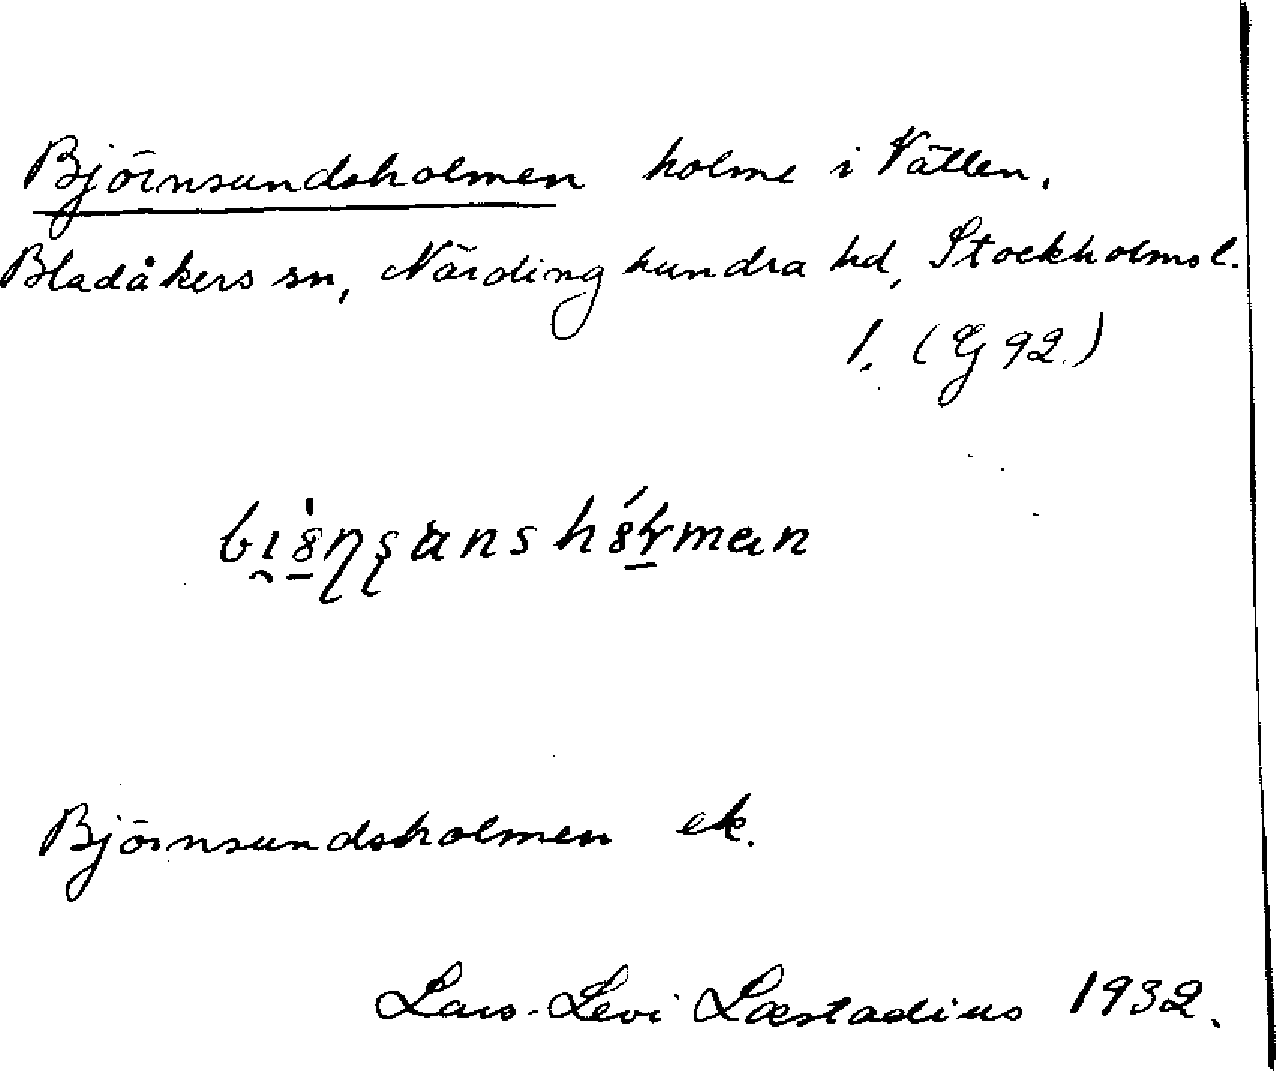 Björnsundsholmen holme i Vällen,
Bladåkers sn, Närdinghundra hd, Stockholms l.
1. (G 92.)
Björnsundsholmen ek.
Lars-Levi Læstadius 1932.